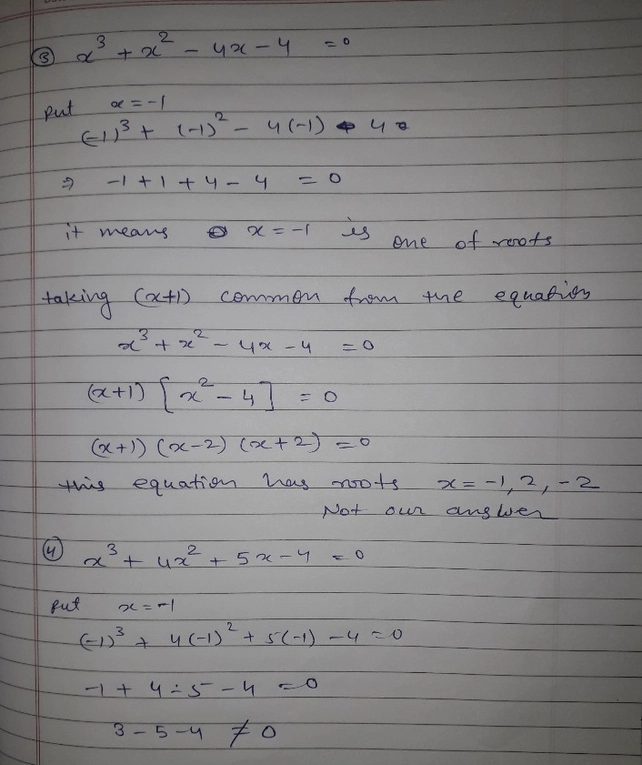 ③ x³ + x² - 4x - 4 = 0
put x = -1
(-1)³ + (-1)² - 4(-1) - 4
⇒ -1 + 1 + 4 - 4 = 0
it means x = -1 is one of roots
taking (x+1) common from the equation
x³ + x² - 4x - 4 = 0
(x+1) [x² - 4] = 0
(x+1) (x-2) (x+2) = 0
this equation has roots x = -1, 2, -2
Not our answer
④ x³ + 4x² + 5x - 4 = 0
put x = -1
(-1)³ + 4(-1)² + 5(-1) - 4 = 0
-1 + 4 - 5 - 4 = 0
3 - 5 - 4 ≠ 0